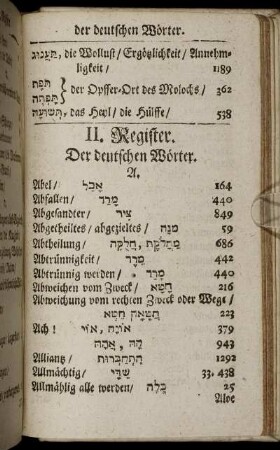 der deutschen Wörter.
תענוג, die Wollust/ Ergötzlichkeit/ Annehm-
ligkeit/ 1189
תפת
תפתה } der Opffer-Ort des Molochs/ 362
תשועה, das Heyl/ die Hülffe/ 538
II. Register.
Der deutschen Wörter.
A.
Abel/ אבל 164
Abfallen/ מרד 440
Abgesandter/ ציר 849
Abgetheiltes/ abgezieltes/ מנה 59
Abtheilung/ מחלקת, חלקה 686
Abtrünnigkeit/ מרד 442
Abtrünnig werden/ מרד 440
Abweichen vom Zweck/ חטא 216
Abweichung vom rechten Zweck oder Wege/
חטאה חטא 223
Ach! אויה, אוי 379
הה, אהה 943
Alliantz/ התחברות 1292
Allmächtig/ שדי 33. 438
Allmählig alle werden/ כלה 25
Aloe